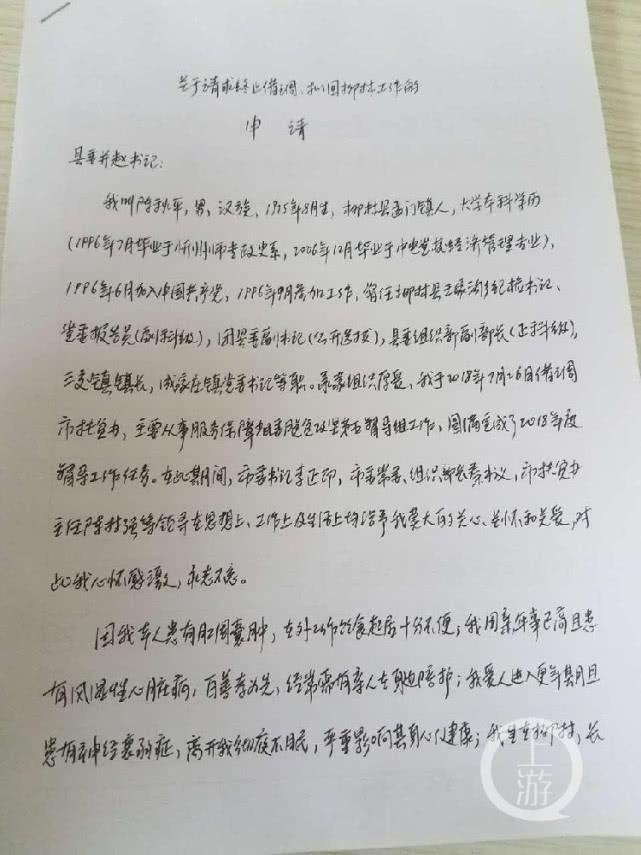 关于请求终止借调、批回柳林工作的
申请
县委并赵书记:
我叫陈秋平,男,汉族,1975年8月生,柳林县孟门镇人,大学本科学历
(1996年7月毕业于忻州师专政史系,2006年12月毕业于中央党校经济管理专业),
1996年6月加入中国共产党,1996年9月参加工作,曾任柳林县王家沟乡纪检书记、
党委报告员(副科级),团县委副书记(公开选拔),县委组织部副部长(正科级),
三交镇镇长,成家庄镇党委书记等职。承蒙组织厚爱,我于2018年7月26日借调
市扶贫办,主要从事服务保障脱贫攻坚督导组工作,圆满完成了2018年度
督导工作任务。在此期间,市委书记李正印,市委常委、组织部长秦书义,市扶贫办
主任陈林强等领导在思想上、工作上及生活上均给予我莫大的关心、关怀和关爱,对
此我心怀感激,永志不忘。
因我本人患有肛周囊肿,在外工作饮食起居十分不便;我母亲年事已高且患
有风湿性心脏病,百善孝为先,经常需有亲人在身边陪护;我爱人进入更年期且
患有神经衰弱症,离开我彻夜不眠,严重影响其身心健康;我生在柳林,长
上游